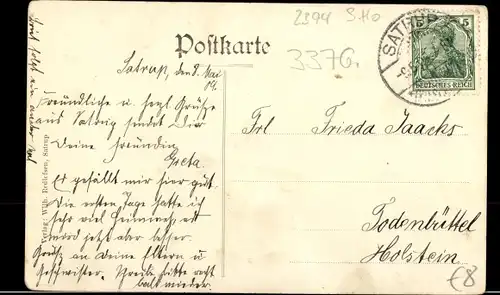 2394 SHo
3376.
Postkarte
SATRUP
5
DEUTSCHES REICH
Satrup, den 8. Mai
09.
Freundliche u herzl Grüße
aus Satrup sendet Dir
Deine Freundin
Greta.
Es gefällt mir hier gut.
Die ersten Tage hatte ich
sehr viel Heimweh, es
wird jetzt aber besser.
Gruß an Deine Eltern u
Geschwister. Schreibe bitte recht
bald wieder.
Frl Frieda Jaacks
Todenbüttel
Holstein
€8
Verlag: Wilh. Detlefsen, Satrup